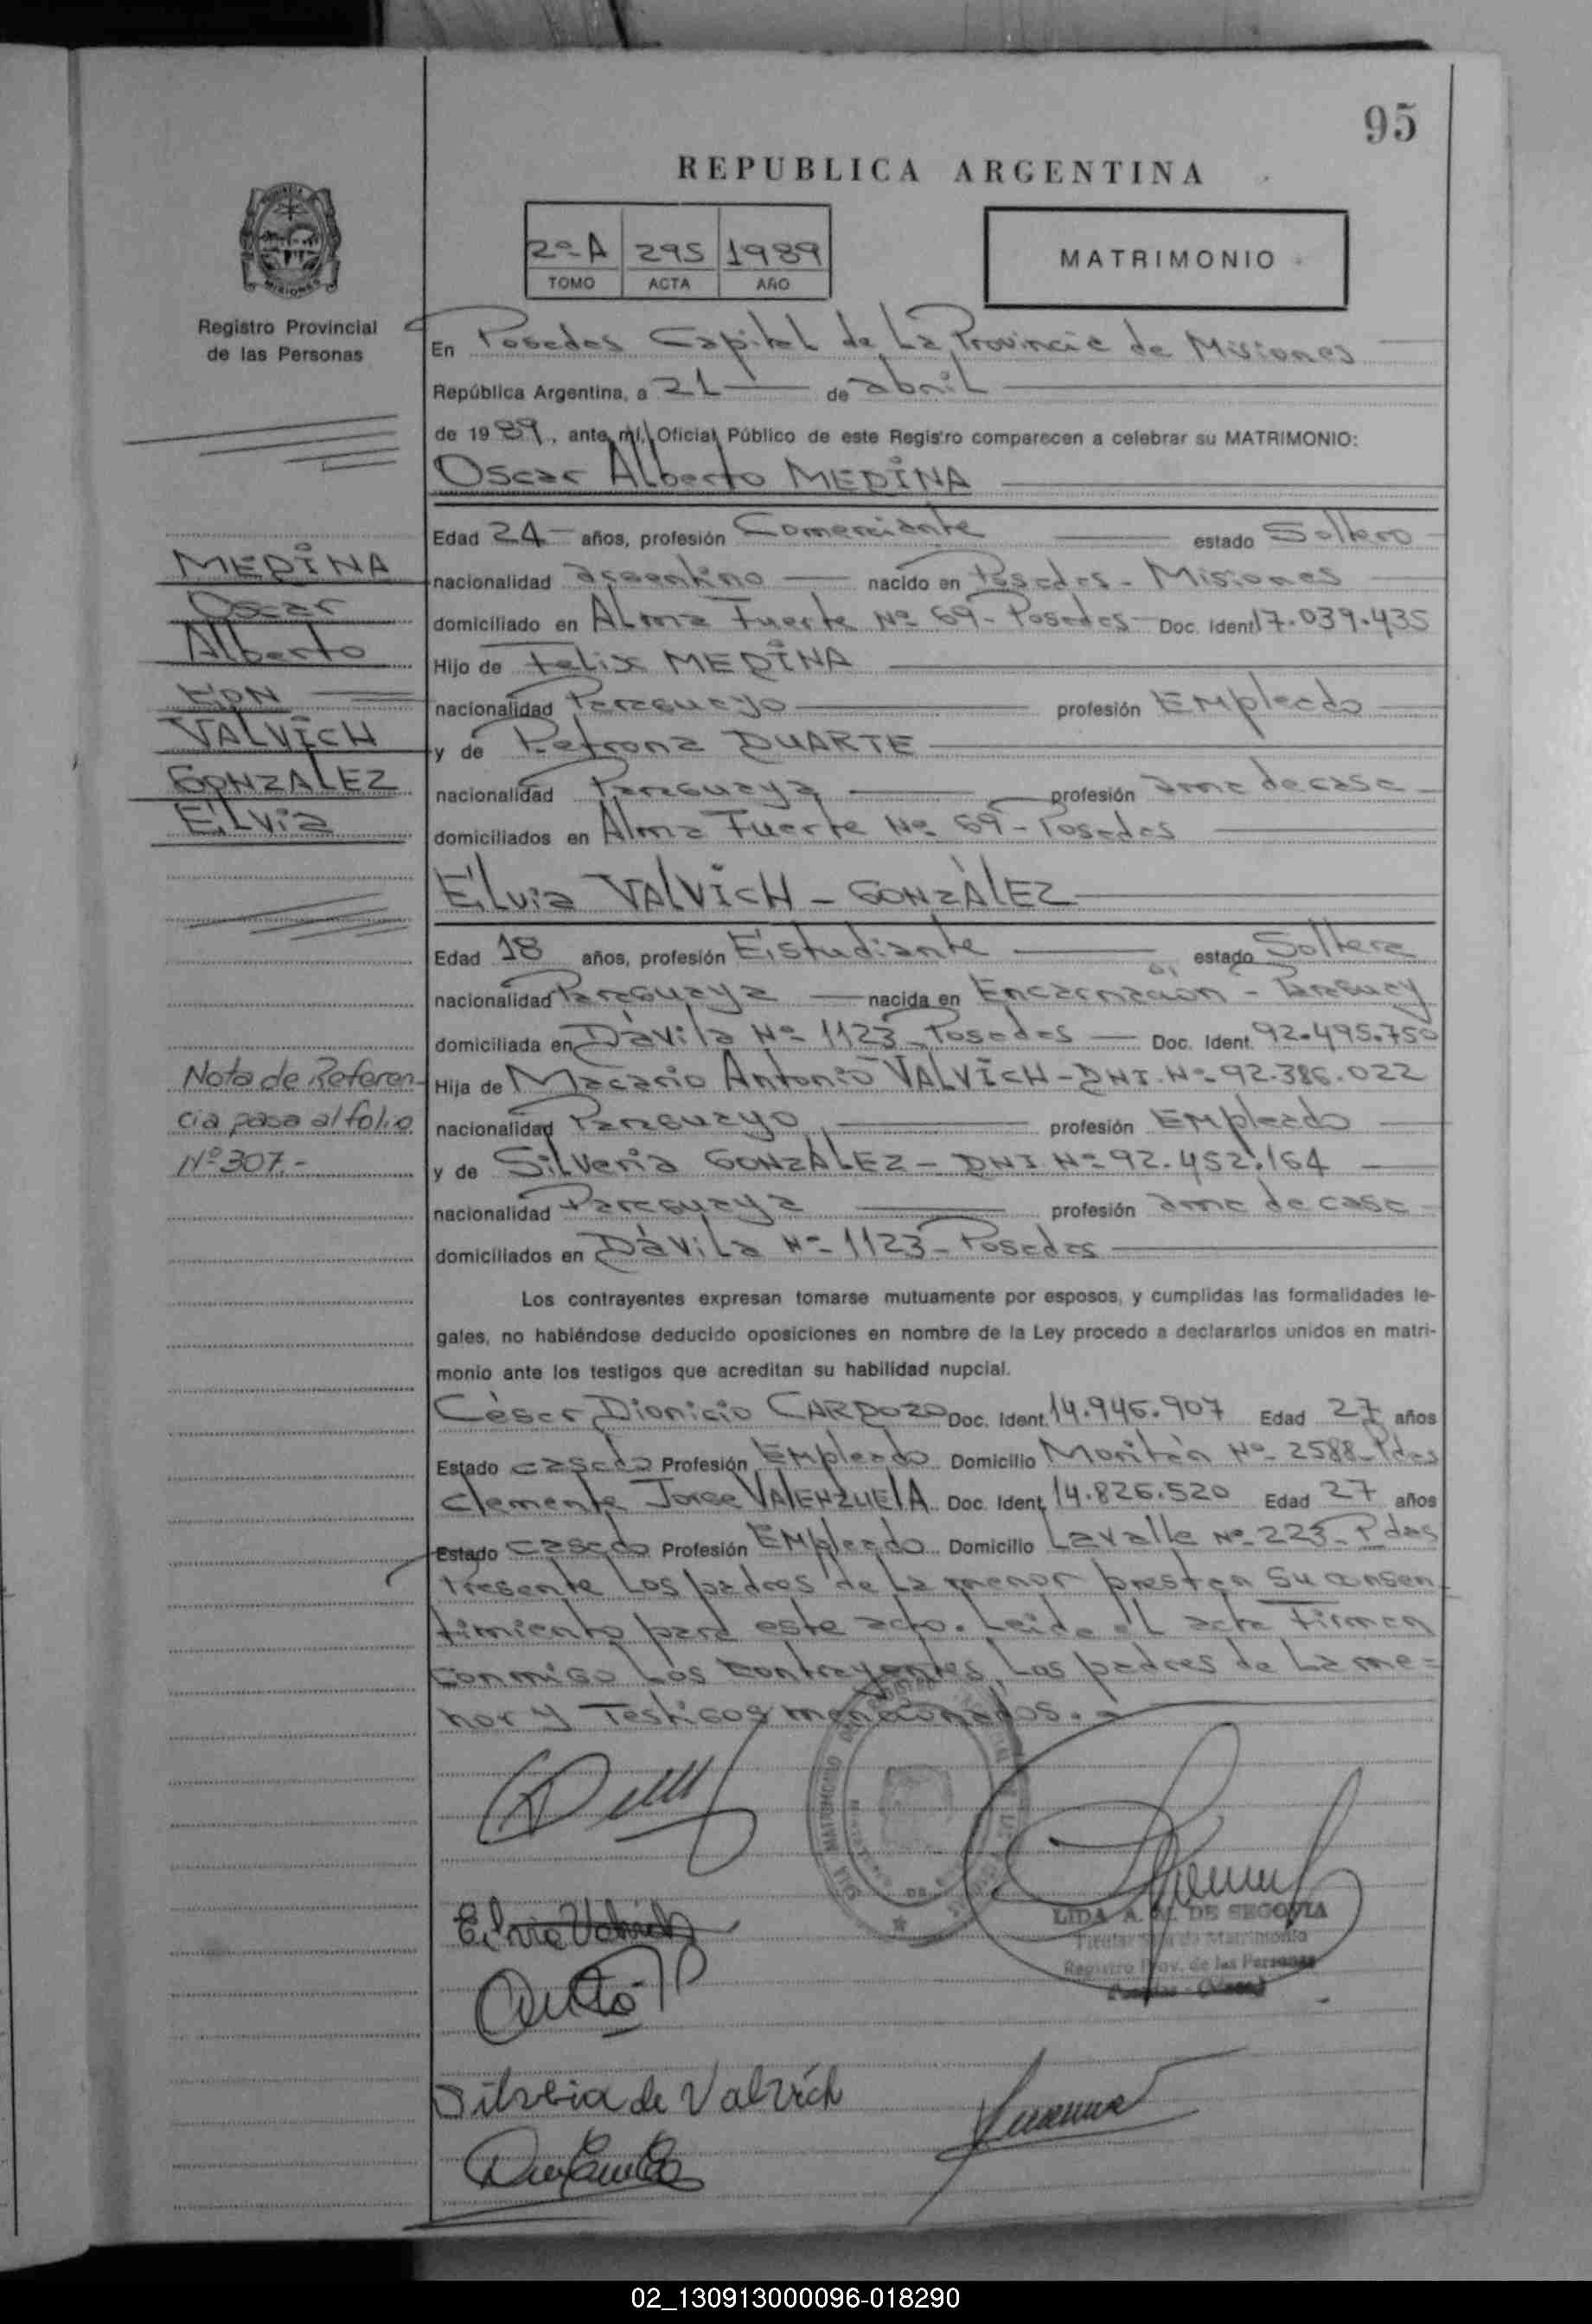 95
REPUBLICA ARGENTINA
2º A 295 1989
TOMO ACTA AÑO
MATRIMONIO
Registro Provincial
de las Personas
En Posadas Capital de La Provincia de Misiones
República Argentina, a 21 de abril
de 1989, ante mí, Oficial Público de este Registro comparecen a celebrar su MATRIMONIO:
Oscar Alberto MEDINA
Edad 24 años, profesión Comerciante estado Soltero
nacionalidad argentino nacido en Posadas - Misiones
domiciliado en Alma Fuerte Nº 69 - Posadas Doc. Ident 17.039.435
Hijo de Felix MEDINA
nacionalidad Paraguayo profesión EMpleado
y de Petrona DUARTE
nacionalidad Paraguaya profesión ama de casa
domiciliados en Alma Fuerte Nº 69 - Posadas
MEDINA
Oscar
Alberto
CON
VALVICH
GONZALEZ
Elvia
Elvia VALVICH - GONZÀLEZ
Edad 18 años, profesión Estudiante estado Soltera
nacionalidad Paraguaya nacida en Encarnación - Paraguay
domiciliada en Dàvila Nº 1123 - Posadas Doc. Ident. 92.495.750
Hija de Macario Antonio VALVICH - DNI. Nº 92.386.022
nacionalidad Paraguayo profesión EMpleado
y de Silveria GONZÀLEZ - DNI Nº 92.452.164
nacionalidad Paraguaya profesión ama de casa
domiciliados en Dàvila Nº 1123 - Posadas
Nota de Referen-
cia pasa al folio
Nº 307.-
Los contrayentes expresan tomarse mutuamente por esposos, y cumplidas las formalidades le-
gales, no habiéndose deducido oposiciones en nombre de la Ley procedo a declararlos unidos en matri-
monio ante los testigos que acreditan su habilidad nupcial.
Cèsar Dionicio CARDOZO Doc. Ident. 14.946.907 Edad 27 años
Estado casado Profesión EMpleado Domicilio Nº 2588 - Pdas
Clemente Jorge VALENZUELA Doc. Ident. 14.826.520 Edad 27 años
Estado casado Profesión EMpleado Domicilio Lavalle Nº 223 - Pdas
Presente Los padres de La menor prestan su consen-
timiento para este acto. Leida el acta Firman
conmigo Los contrayentes, Los padres de La me-
nor y Testigos mencionados.-
Elvia Valvich
LIDA A. M. DE SEGOVIA
Titular de Matrimonio
Registro Prov. de las Personas
Silveia de Valvich
02_130913000096-018290